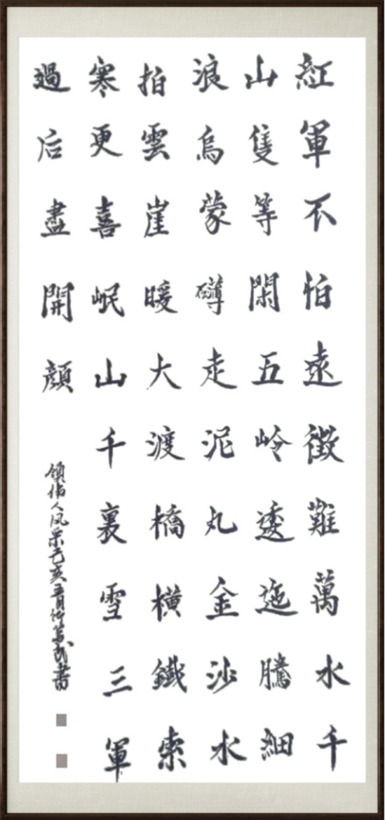 紅軍不怕遠徵難萬水千
山隻等閑五岭逶迤騰細
浪烏蒙礴走泥丸金沙水
拍雲崖暖大渡橋橫鐵索
寒更喜岷山千裏雪三軍
過后盡開顏